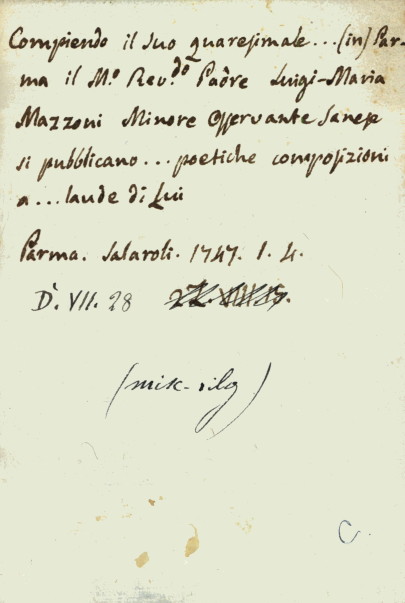 Compiendo il suo quaresimale... (in) Par-
ma il M.º Rev.do Padre Luigi-Maria
Mazzoni Minore Osservante Sanese
si pubblicano... poetiche composizioni
a... laude di Lui
Parma. Salaroli. 1747. I. 4.
D. VII. 28
C.